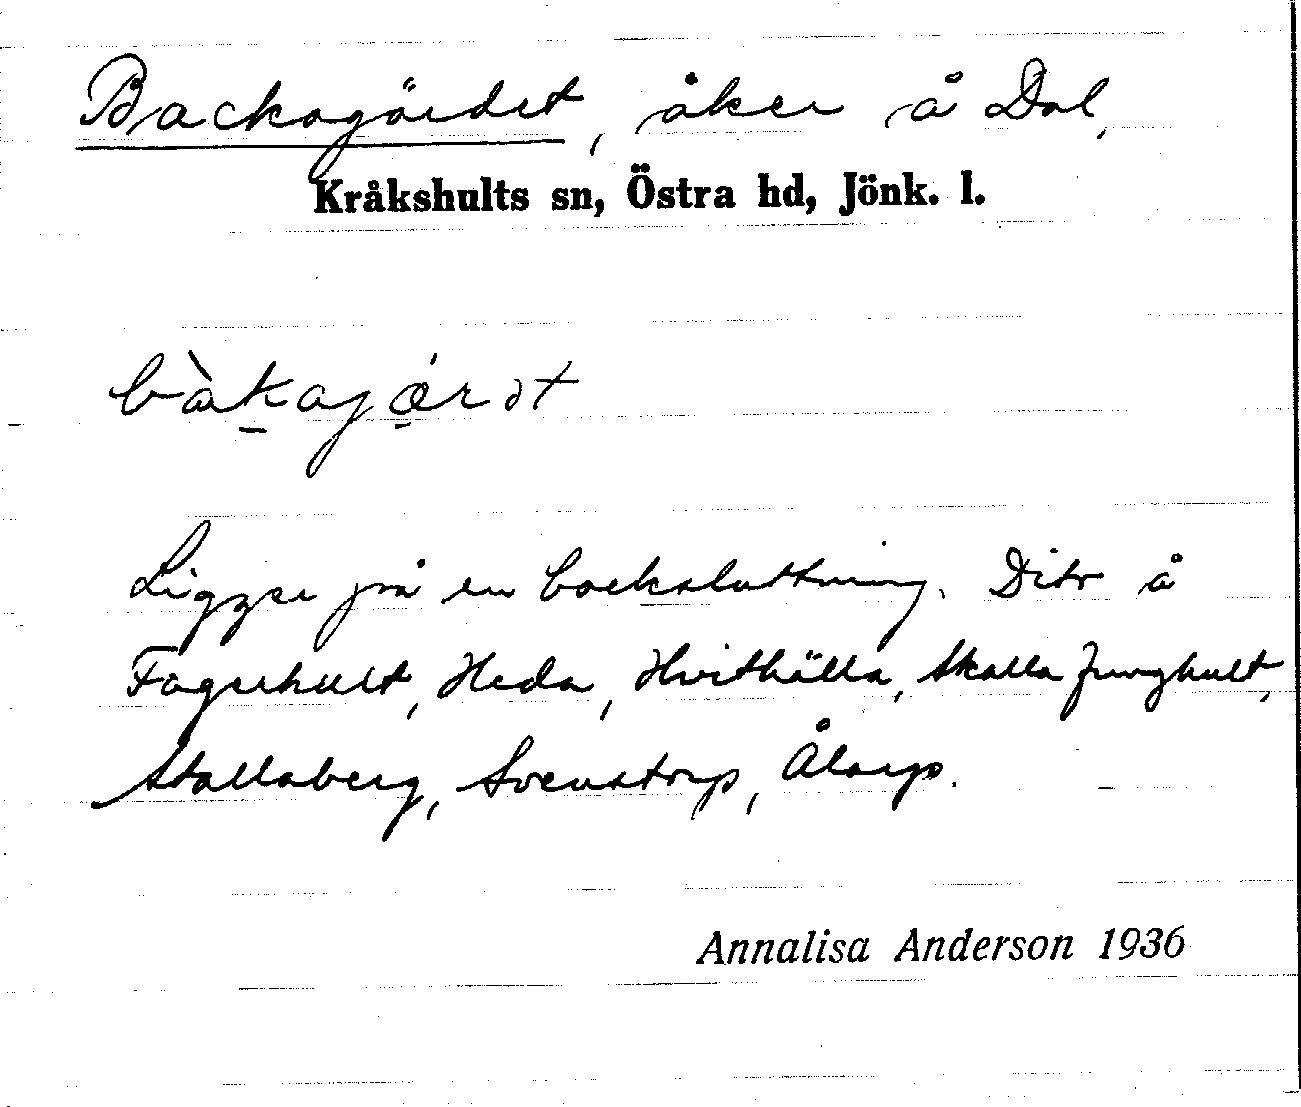 Backagärdet, åker å Dal,
Kråkshults sn, Östra hd, Jönk. l.
bàkajǽrət
Ligger på en backsluttning. Dito å
Fagerhult, Heda, Hvithälla, Skalla Junghult,
Stallaberg, Svenstorp, Ålarp.
Annalisa Anderson 1936